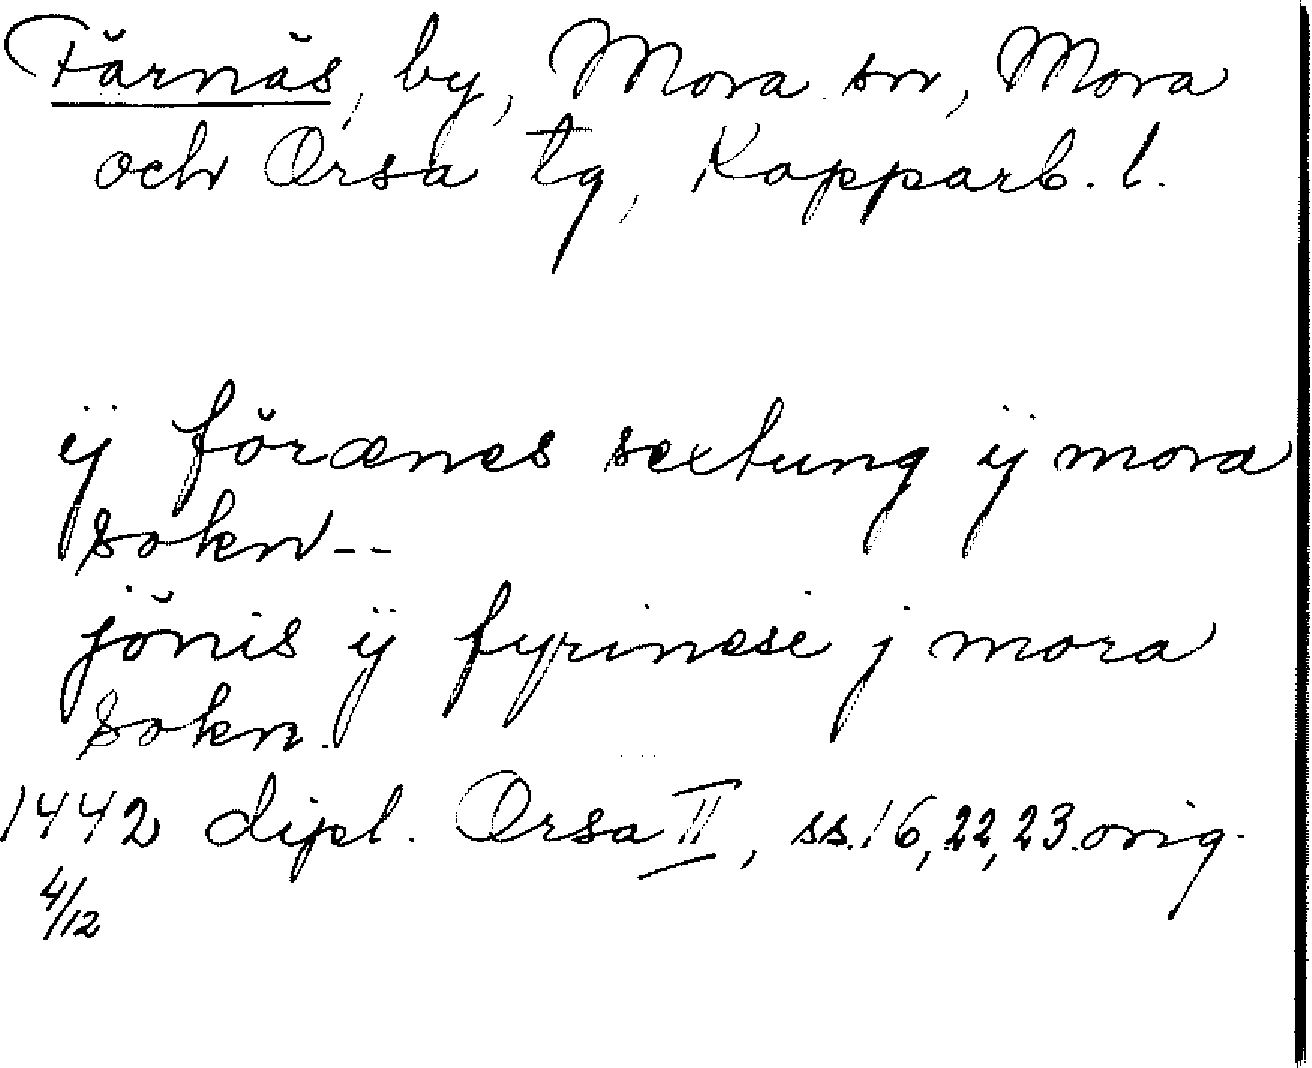 Färnäs, by, Mora sn, Mora
och Orsa tg, Kopparb. l.
ij föränes sextung ij mora
sokn--
jönis ij fyrinese j mora
sokn.
1442 dipl. Orsa II, ss.16,22,23.orig.
4/12